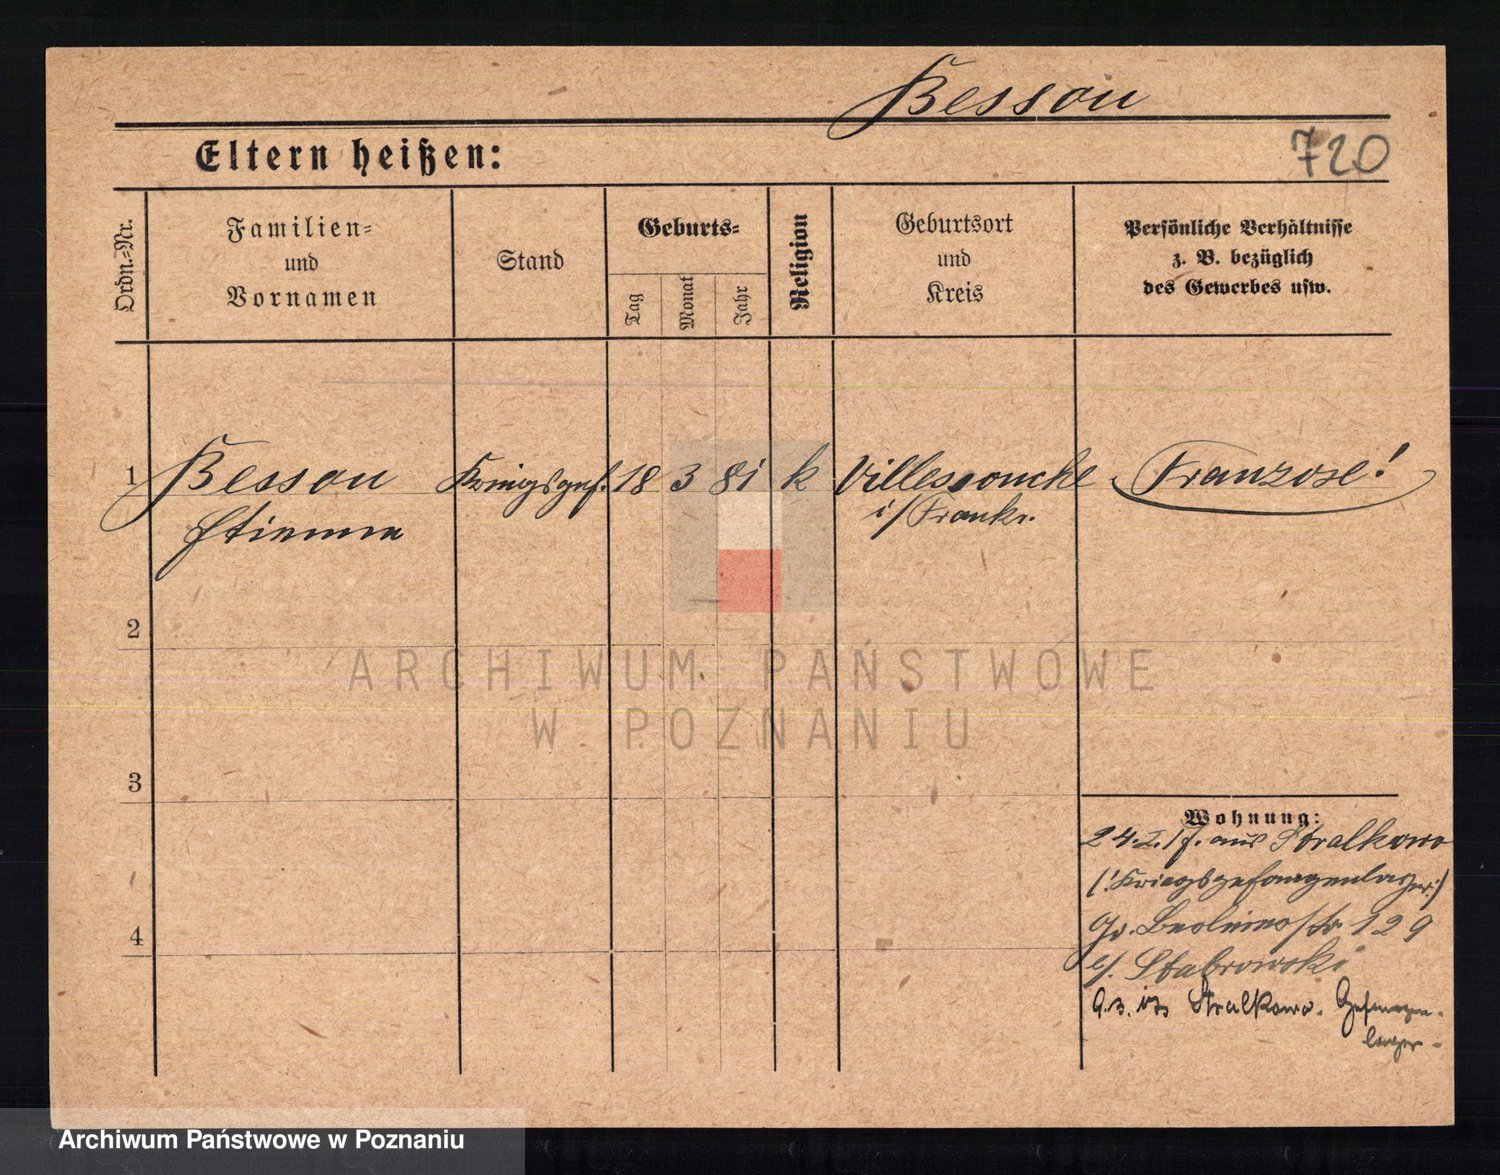 Bessou
Eltern heißen:
720
Ordn.-Nr.
Familien-
und
Vornamen
Stand
Geburts-
Tag
Monat
Jahr
Religion
Geburtsort
und
Kreis
Persönliche Verhältnisse
z. B. bezüglich
des Gewerbes usw.
1 Bessou Kriegsgef. 18 3 81 k Franzose!
i/Frankr.
2
ARCHIWUM PAŃSTWOWE
W POZNANIU
3
Wohnung:
24.2.17. aus Stralkowo
(:Kriegsgefangenlager:)
Gr. Berlinerstr. 129
b/. Stabrowski
4
9.3. Stralkowo. Gefangen-
lager-
Archiwum Państwowe w Poznaniu